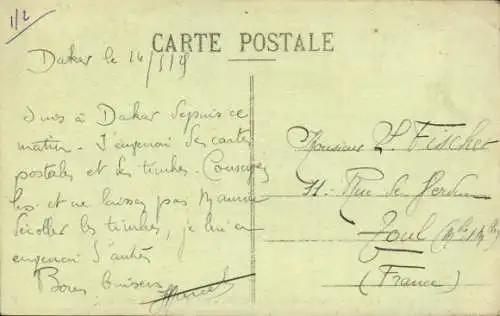 1/2
CARTE POSTALE
Dakar le 14/1/29
Suis à Dakar depuis ce
matin. J'envoie des cartes
postales et des timbres. Conservez
les et ne laissez pas Maurice
décoller les timbres, je lui en
enverrai d'autres
Bons baisers
Marcel
Monsieur L. Fischer
11 - Rue de Verdun
Toul (Mthe & Mlle)
(France)